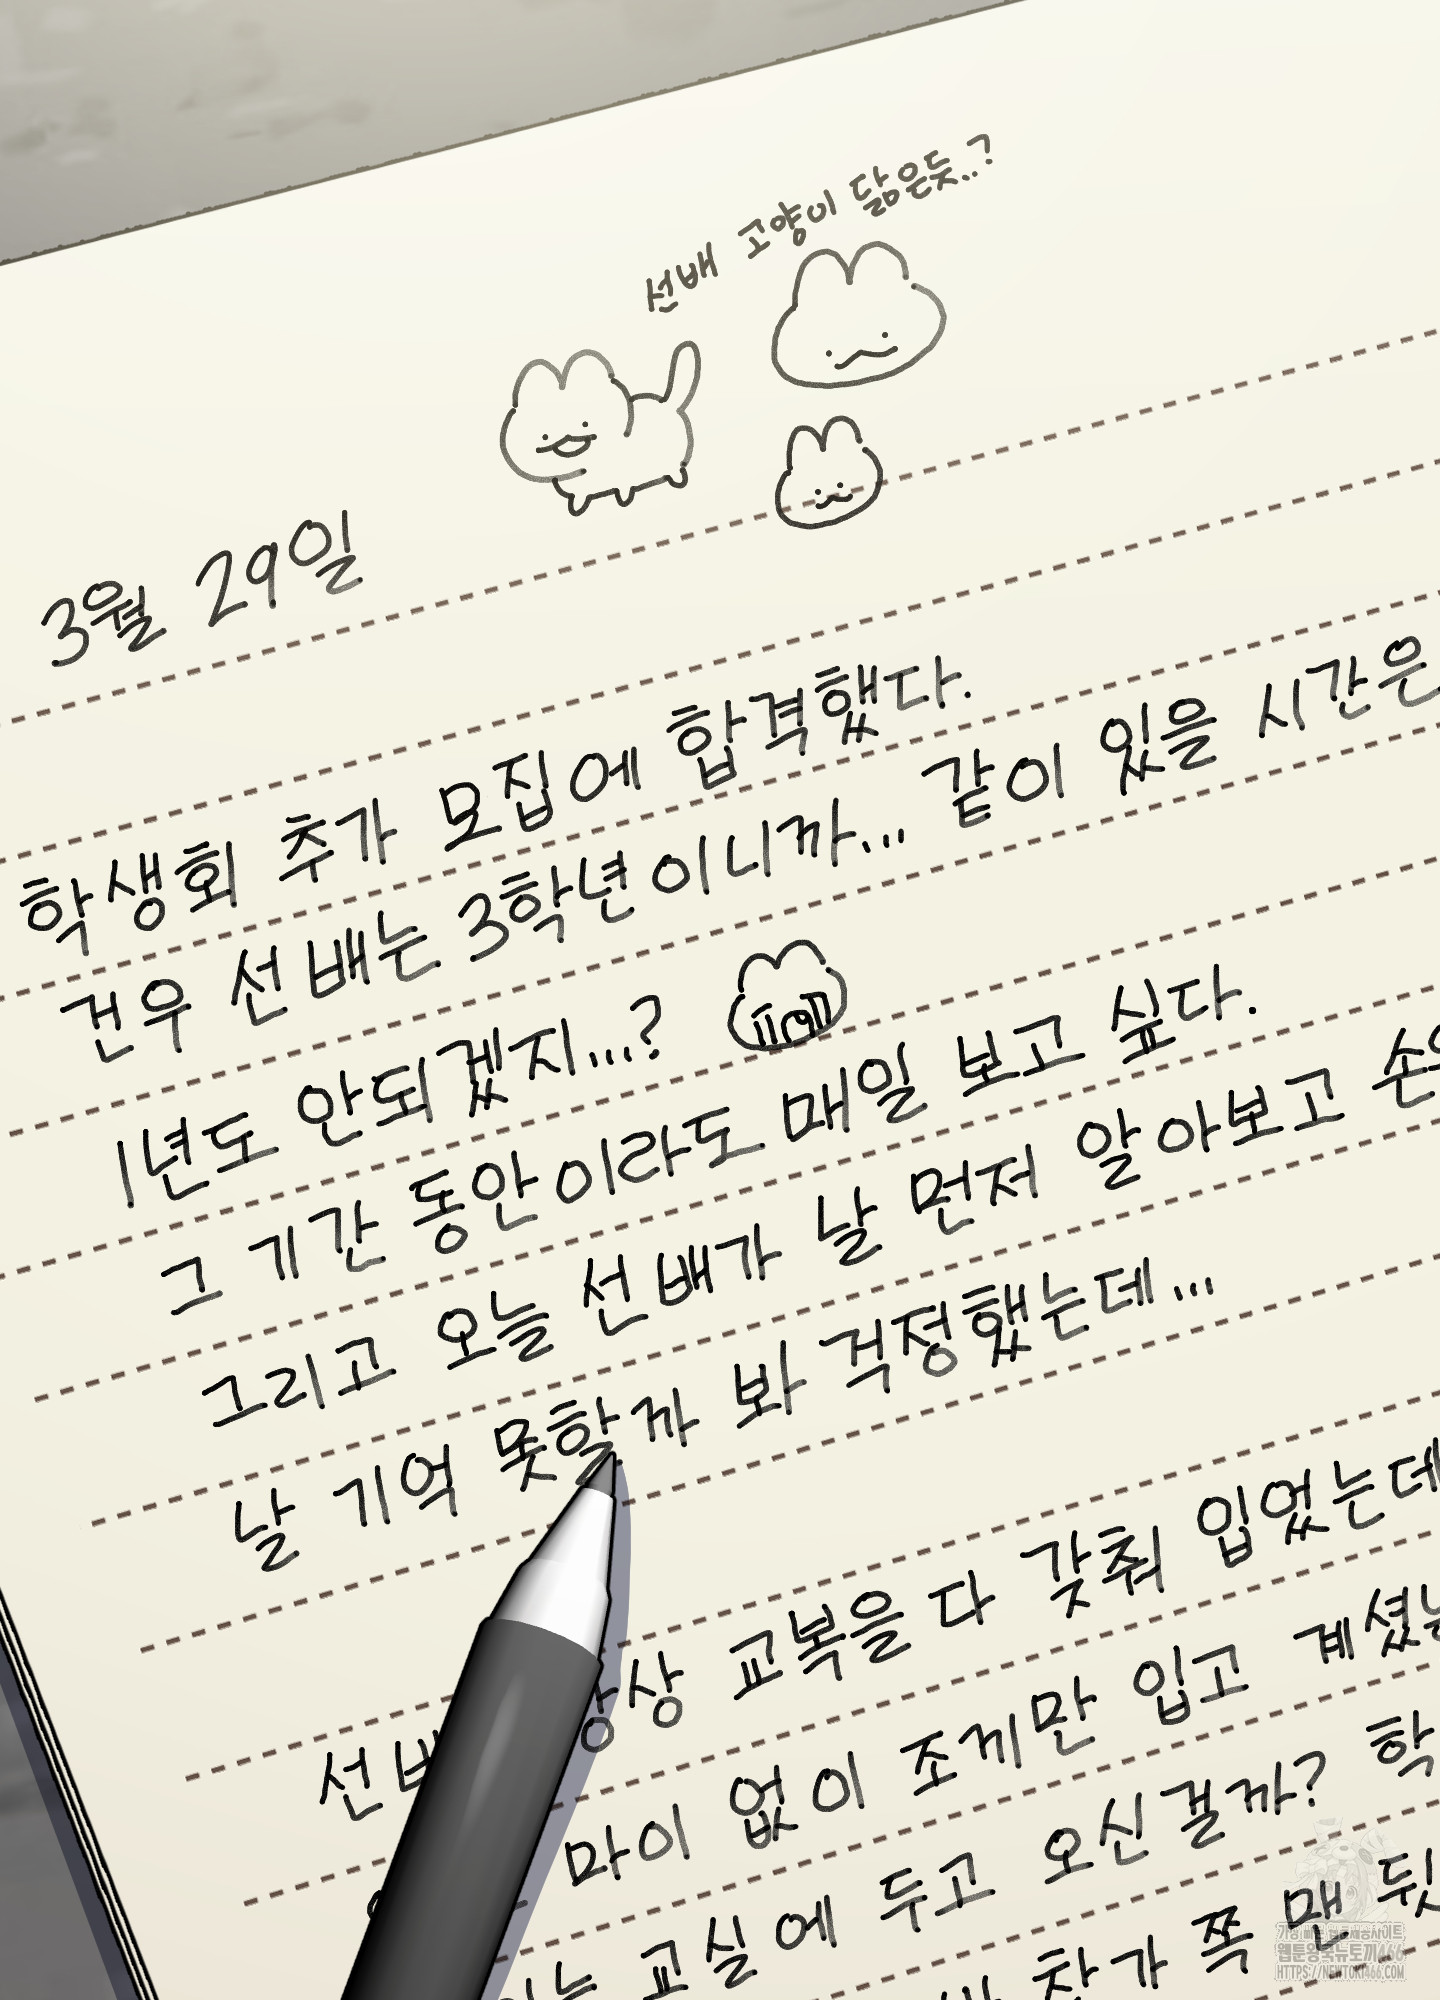 선배 고양이 닮은듯..?
3월 29일
학생회 추가 모집에 합격했다.
건우 선배는 3학년이니까... 같이 있을 시간은
1년도 안되겠지...?
그 기간 동안이라도 매일 보고 싶다.
그리고 오늘 선배가 날 먼저 알아보고
날 기억 못할까 봐 걱정했는데...
상 교복을 다 갖춰 입었는데
마이 없이 조끼만 입고
교실에 두고 오신걸까? 학
창가 쪽 맨
웹툰왕국뉴토끼466
HTTPS://NEWTOKI466.COM